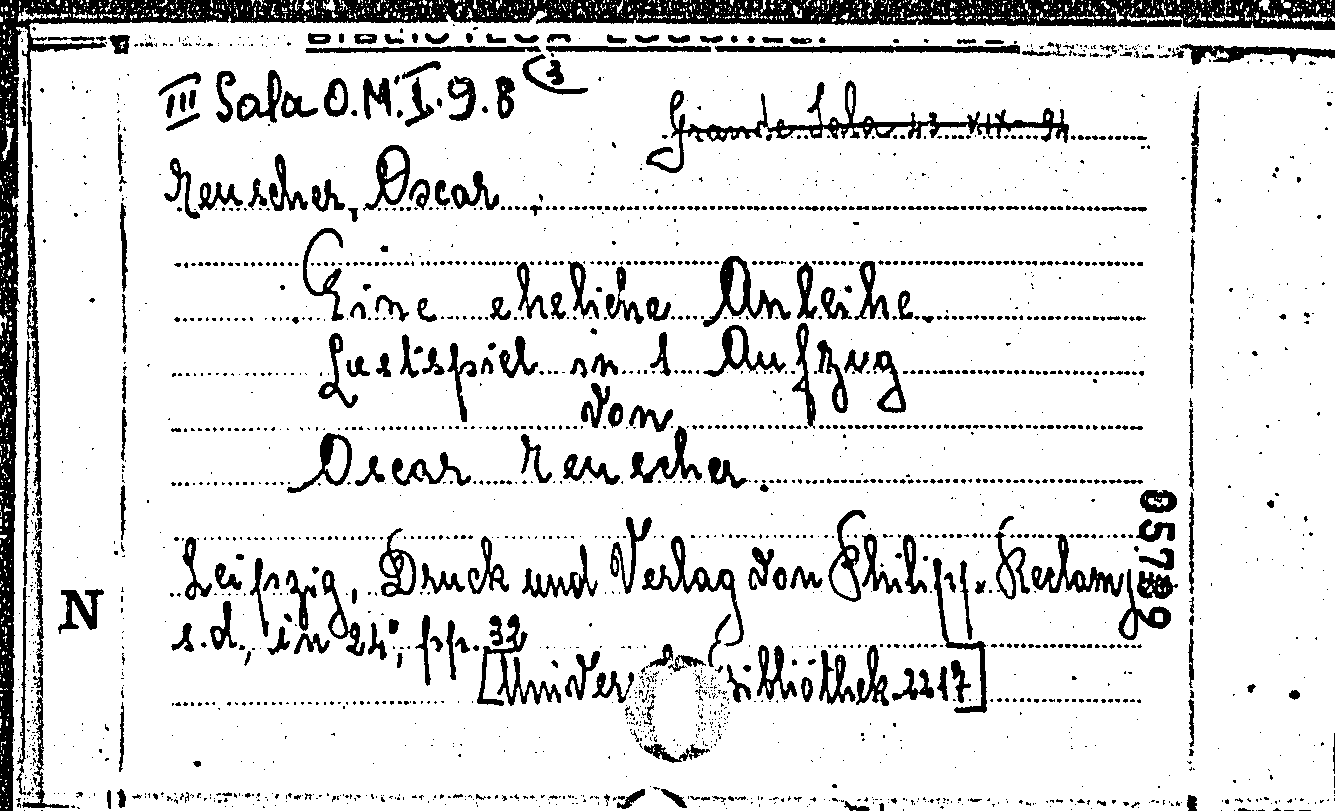 III Sala O.M.I.9.8 (3
Grande Sala 43 XIX-94
Reuscher, Oscar.
Eine eheliche Anleihe.
Lustspiel in 1 Aufzug
von
Oscar Reuscher.
Leipzig, Druck und Verlag von Philipp Reclam j.
s.d., in 24°, pp. 32
[Univer bibliothek 2217]
N